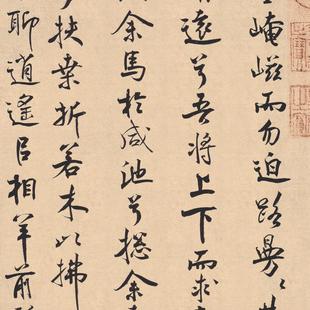 崦嵫而勿迫路曼〻
遠兮吾將上下而求
余馬於咸池兮揔余
扶桒折若木以拂
聊逍遙㠯相羊前